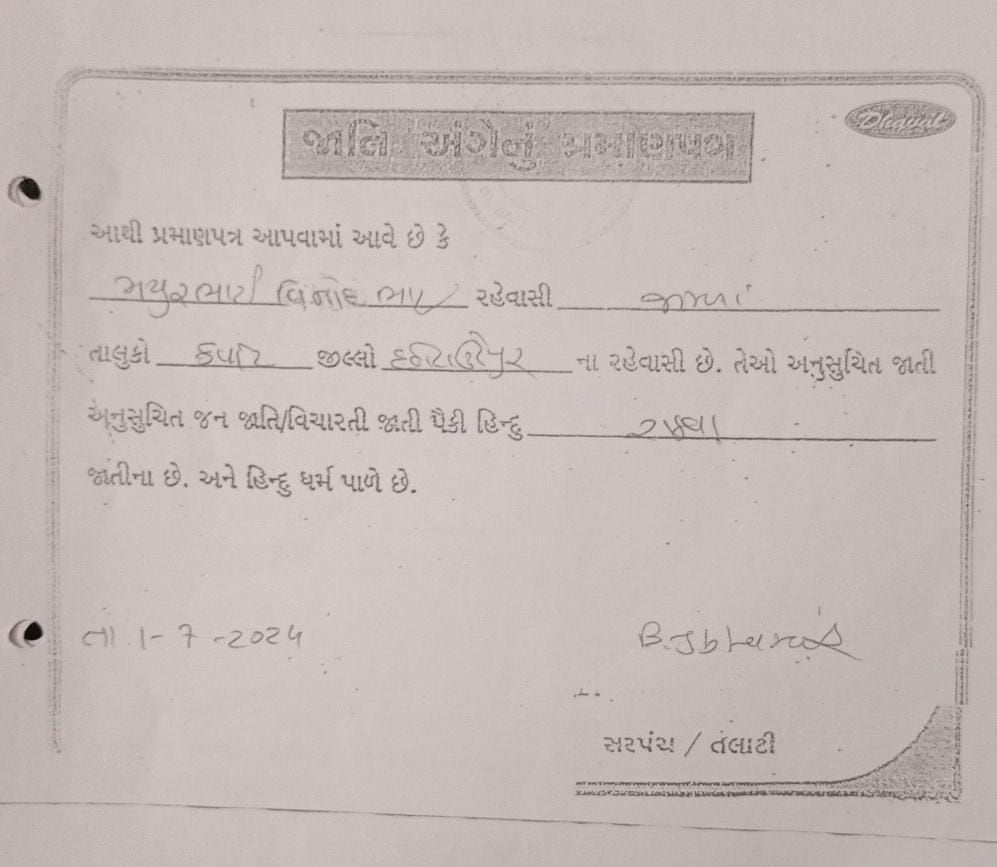 જાતિ અંગેનું પ્રમાણપત્ર
આથી પ્રમાણપત્ર આપવામાં આવે છે કે
મયુરભાઈ વિનોદભાઈ રહેવાસી
તાલુકો કવાંટ જીલ્લો છોટાઉદેપુર ના રહેવાસી છે. તેઓ અનુસુચિત જાતી
અનુસુચિત જન જાતિ/વિચારતી જાતી પૈકી હિન્દુ રાઠવા
જાતીના છે. અને હિન્દુ ધર્મ પાળે છે.
તા. 1-7-2024
સરપંચ / તલાટી